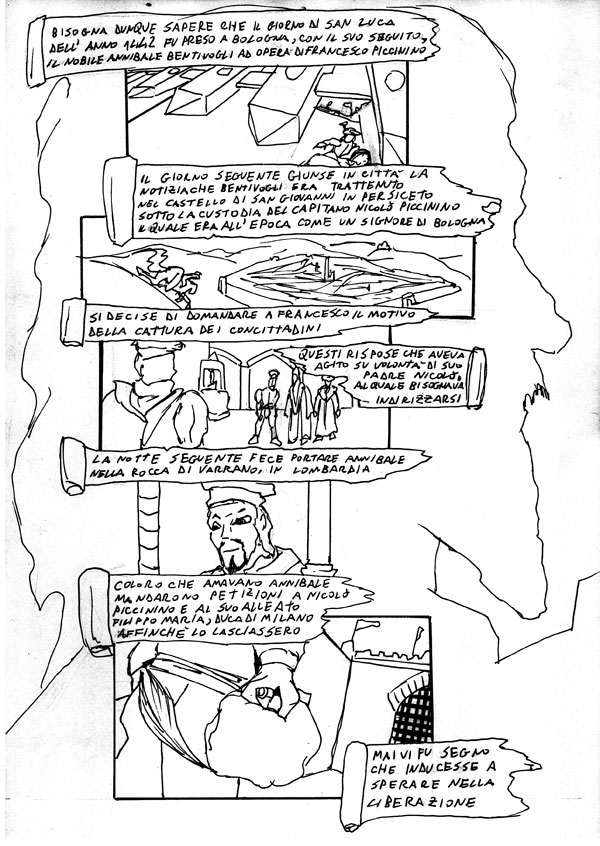 BISOGNA DUNQUE SAPERE CHE IL GIORNO DI SAN LUCA
DELL'ANNO 1442 FU PRESO A BOLOGNA, CON IL SUO SEGUITO,
IL NOBILE ANNIBALE BENTIVOGLI AD OPERA DI FRANCESCO PICCININO
IL GIORNO SEGUENTE GIUNSE IN CITTÀ LA
NOTIZIA CHE BENTIVOGLI ERA TRATTENUTO
NEL CASTELLO DI SAN GIOVANNI IN PERSICETO
SOTTO LA CUSTODIA DEL CAPITANO NICOLÒ PICCININO
IL QUALE ERA ALL'EPOCA COME UN SIGNORE DI BOLOGNA
SI DECISE DI DOMANDARE A FRANCESCO IL MOTIVO
DELLA CATTURA DEI CONCITTADINI
QUESTI RISPOSE CHE AVEVA
AGITO SU VOLONTÀ DI SUO
PADRE NICOLÒ,
AL QUALE BISOGNAVA
INDIRIZZARSI
LA NOTTE SEGUENTE FECE PORTARE ANNIBALE
NELLA ROCCA DI VARRANO, IN LOMBARDIA
COLORO CHE AMAVANO ANNIBALE
MANDARONO PETIZIONI A NICOLÒ
PICCININO E AL SUO ALLEATO
FILIPPO MARIA, DUCA DI MILANO
AFFINCHÈ LO LASCIASSERO
MAI VI FU SEGNO
CHE INDUCESSE A
SPERARE NELLA
LIBERAZIONE